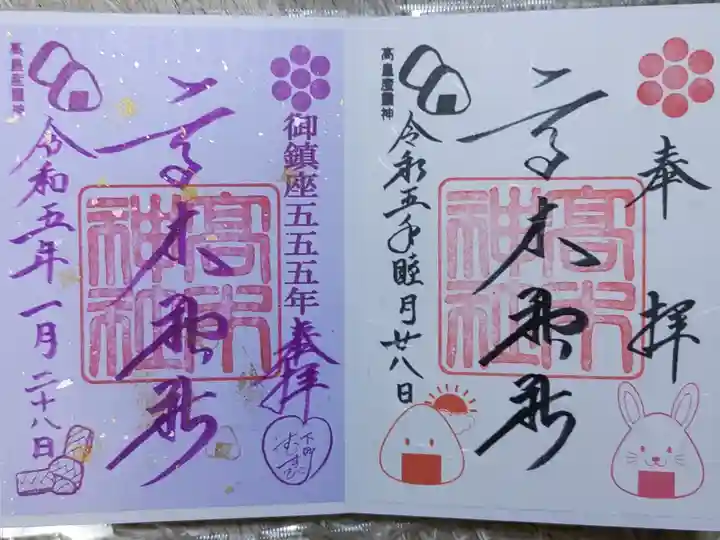 奉拝
高木神社
高木神社
高皇産靈神
令和五年睦月廿八日
御鎮座五五五年
奉拝
下町
むすび
高木神社
高木神社
高皇産靈神
令和五年一月二十八日